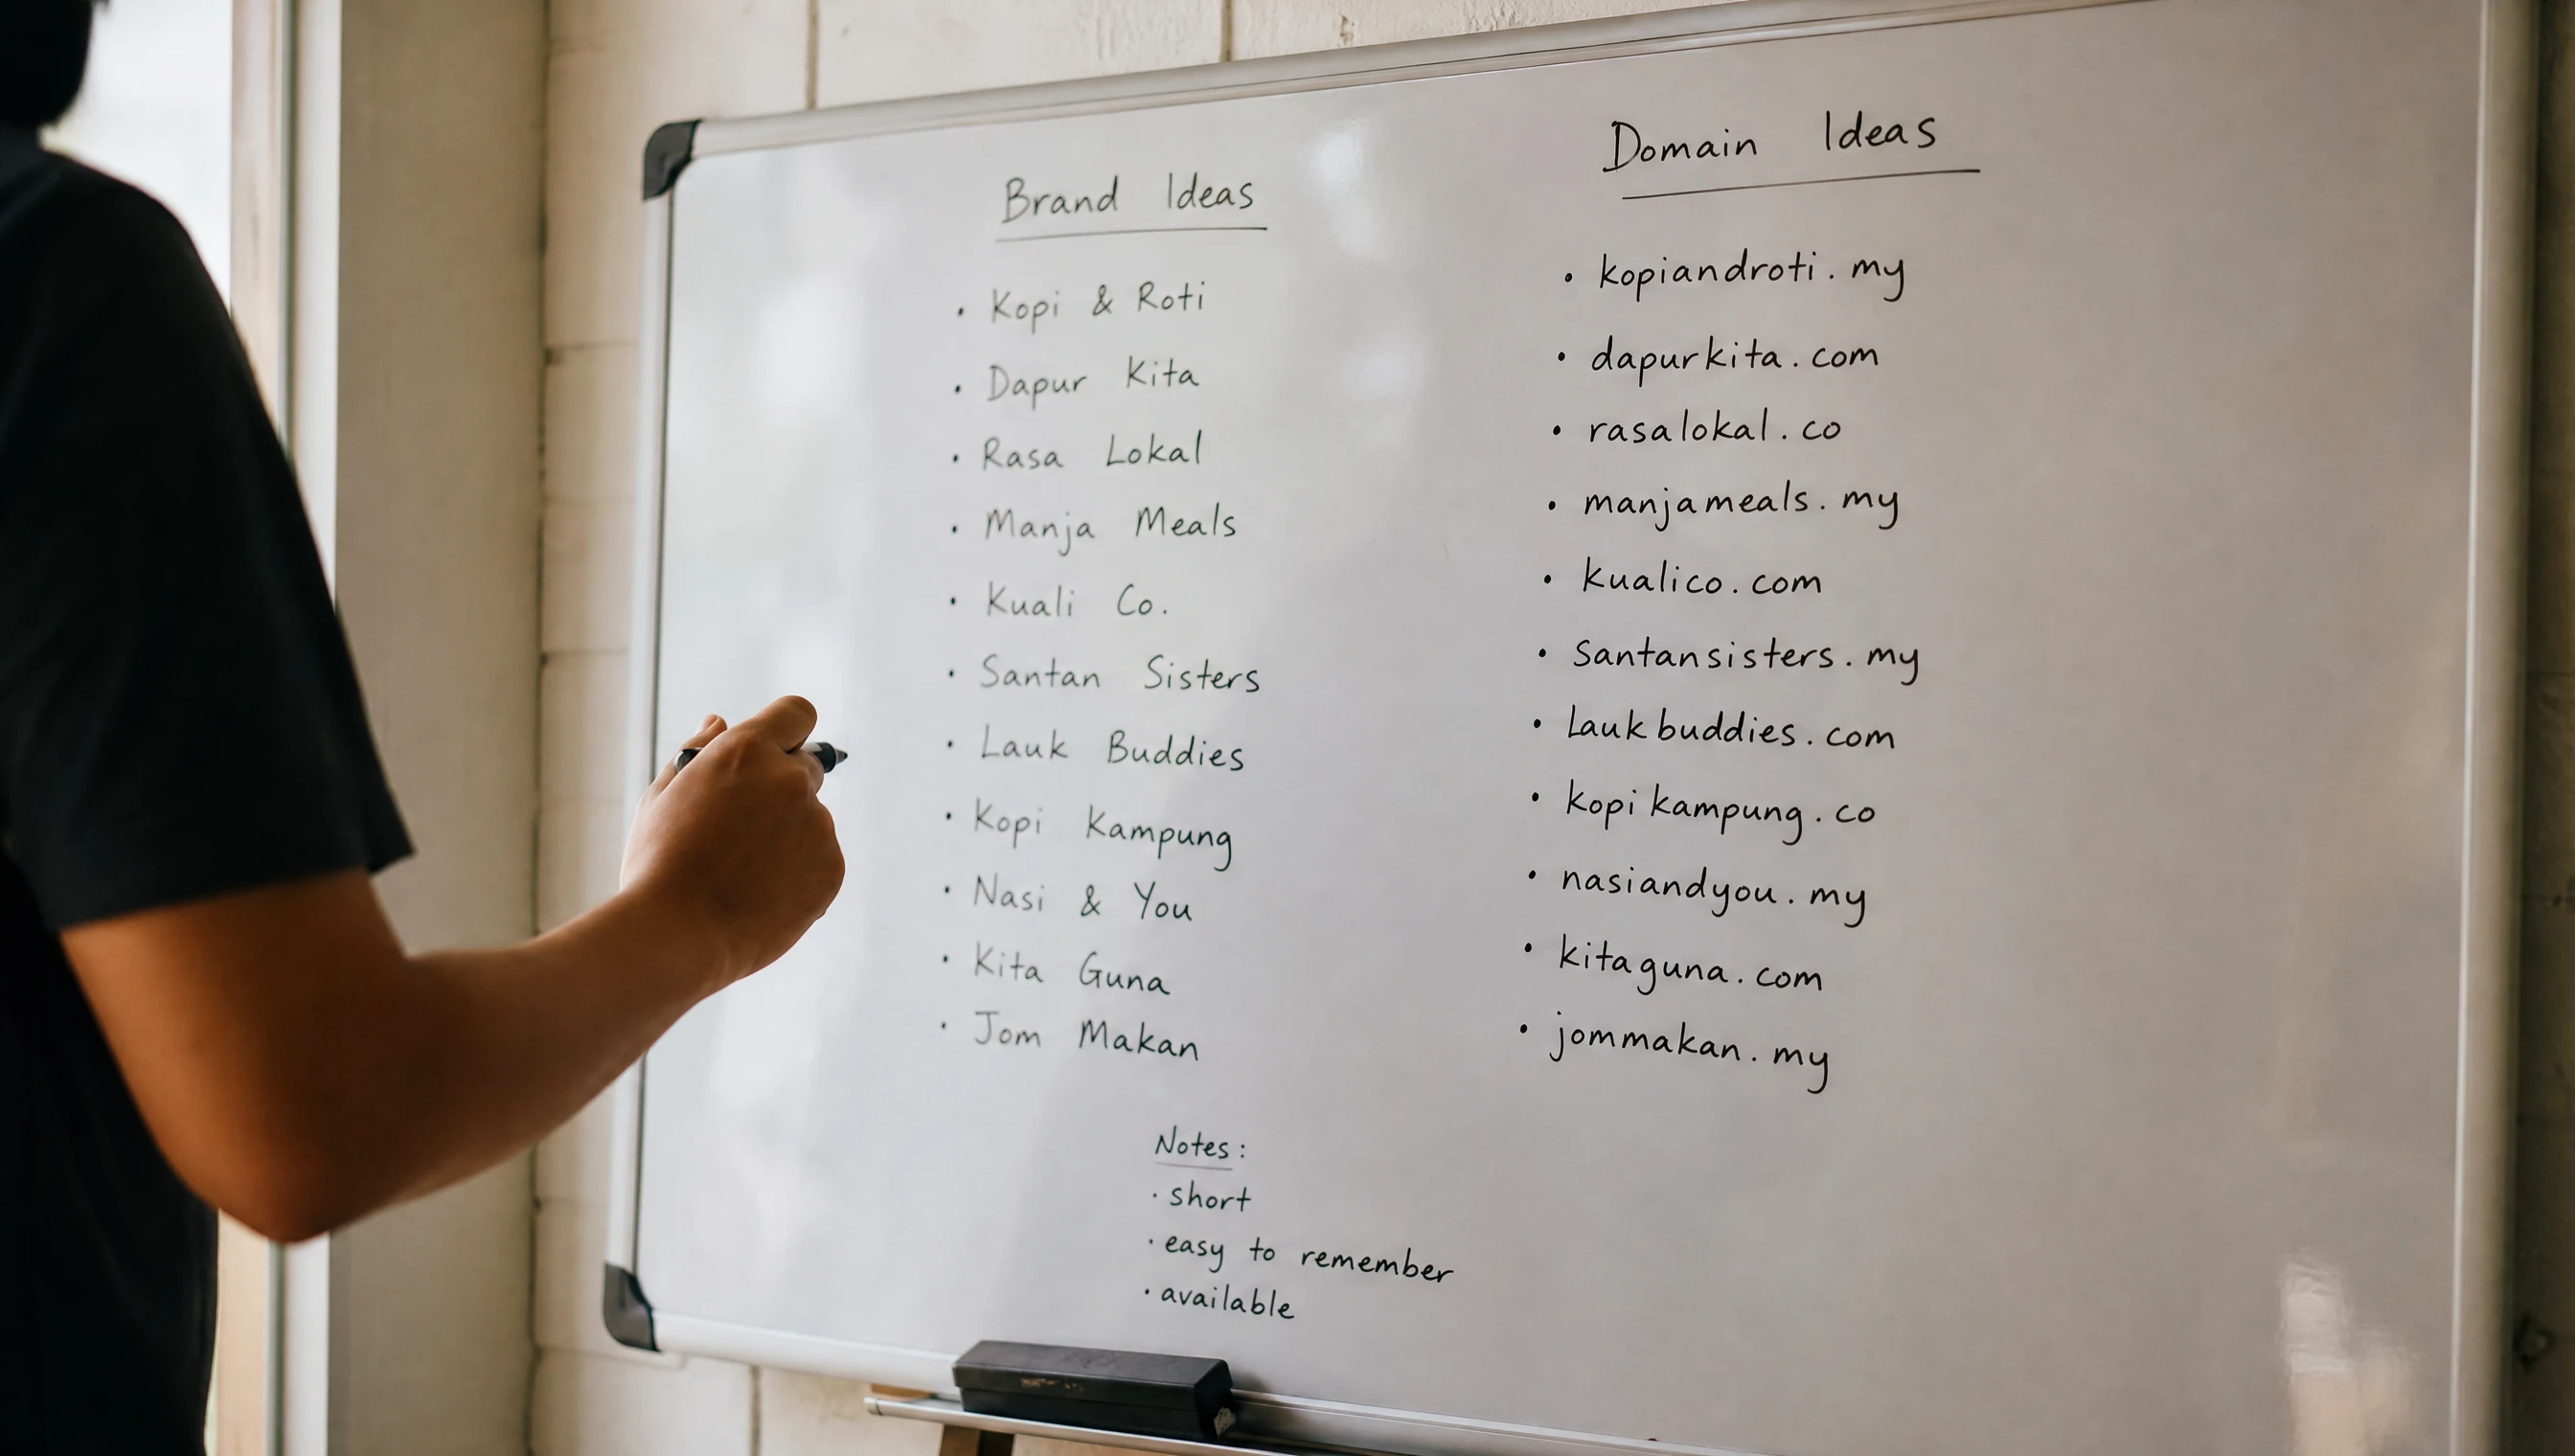 Brand Ideas
• Kopi & Roti
• Dapur Kita
• Rasa Lokal
• Manja Meals
• Kuali Co.
• Santan Sisters
• Lauk Buddies
• Kopi Kampung
• Nasi & You
• Kita Guna
• Jom Makan
Domain Ideas
• kopiandroti.my
• dapurkita.com
• rasalokal.co
• manjameals.my
• kualico.com
• santansisters.my
• laukbuddies.com
• kopikampung.co
• nasiandyou.my
• kitaguna.com
• jommakan.my
Notes:
• short
• easy to remember
• available